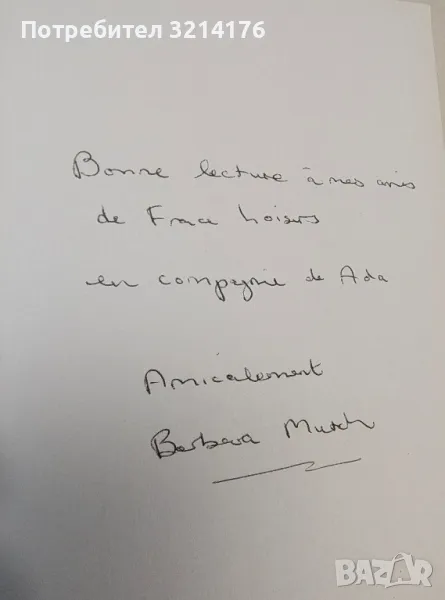 Потребител 3214176
Потребител 3214176
Bonne lecture à mes amis
de France Loisirs
en compagnie de Ada
Amicalement
Barbara Mutch
BAZAR